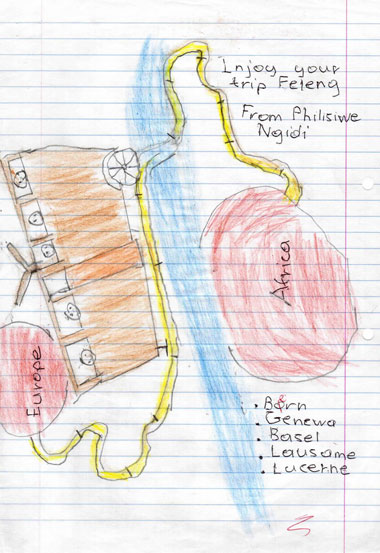 Injoy your
trip Feleng
From Philisiwe
Ngidi
Africa
Europe
. Børn
. Genewa
. Basel
. Lausame
. Lucerne